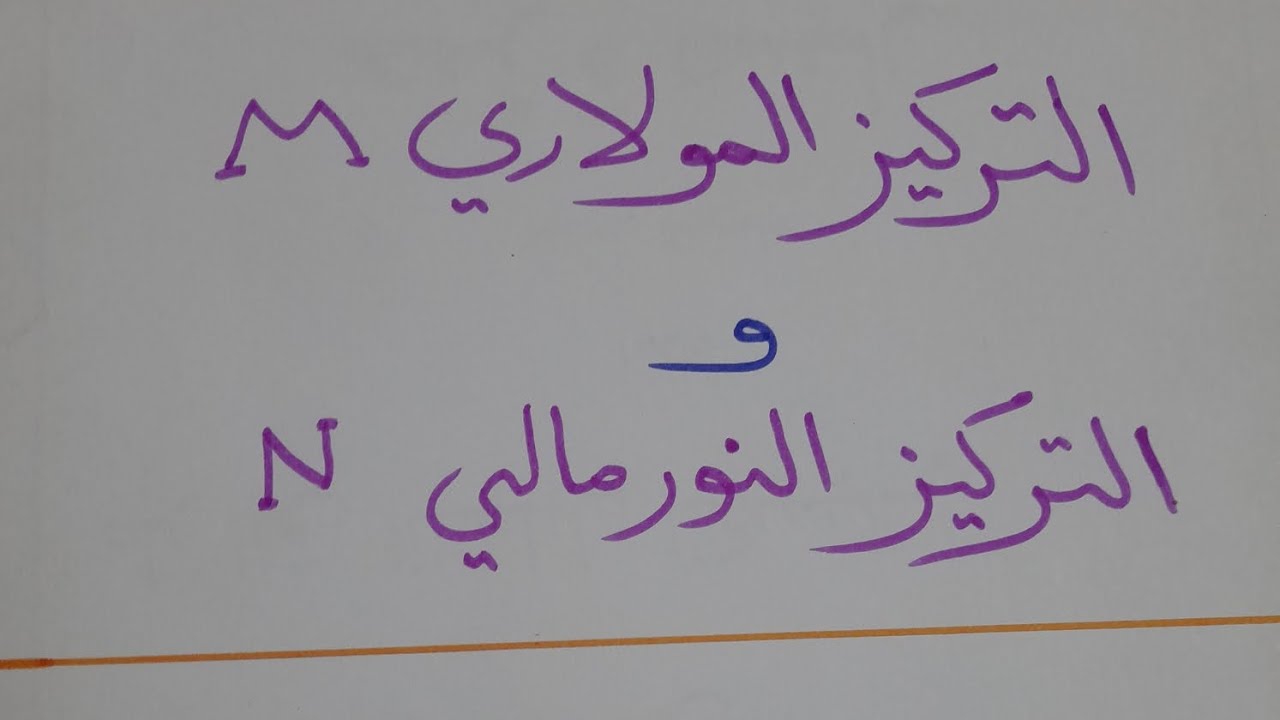 التركيز المولاري M
و
التركيز النورمالي N